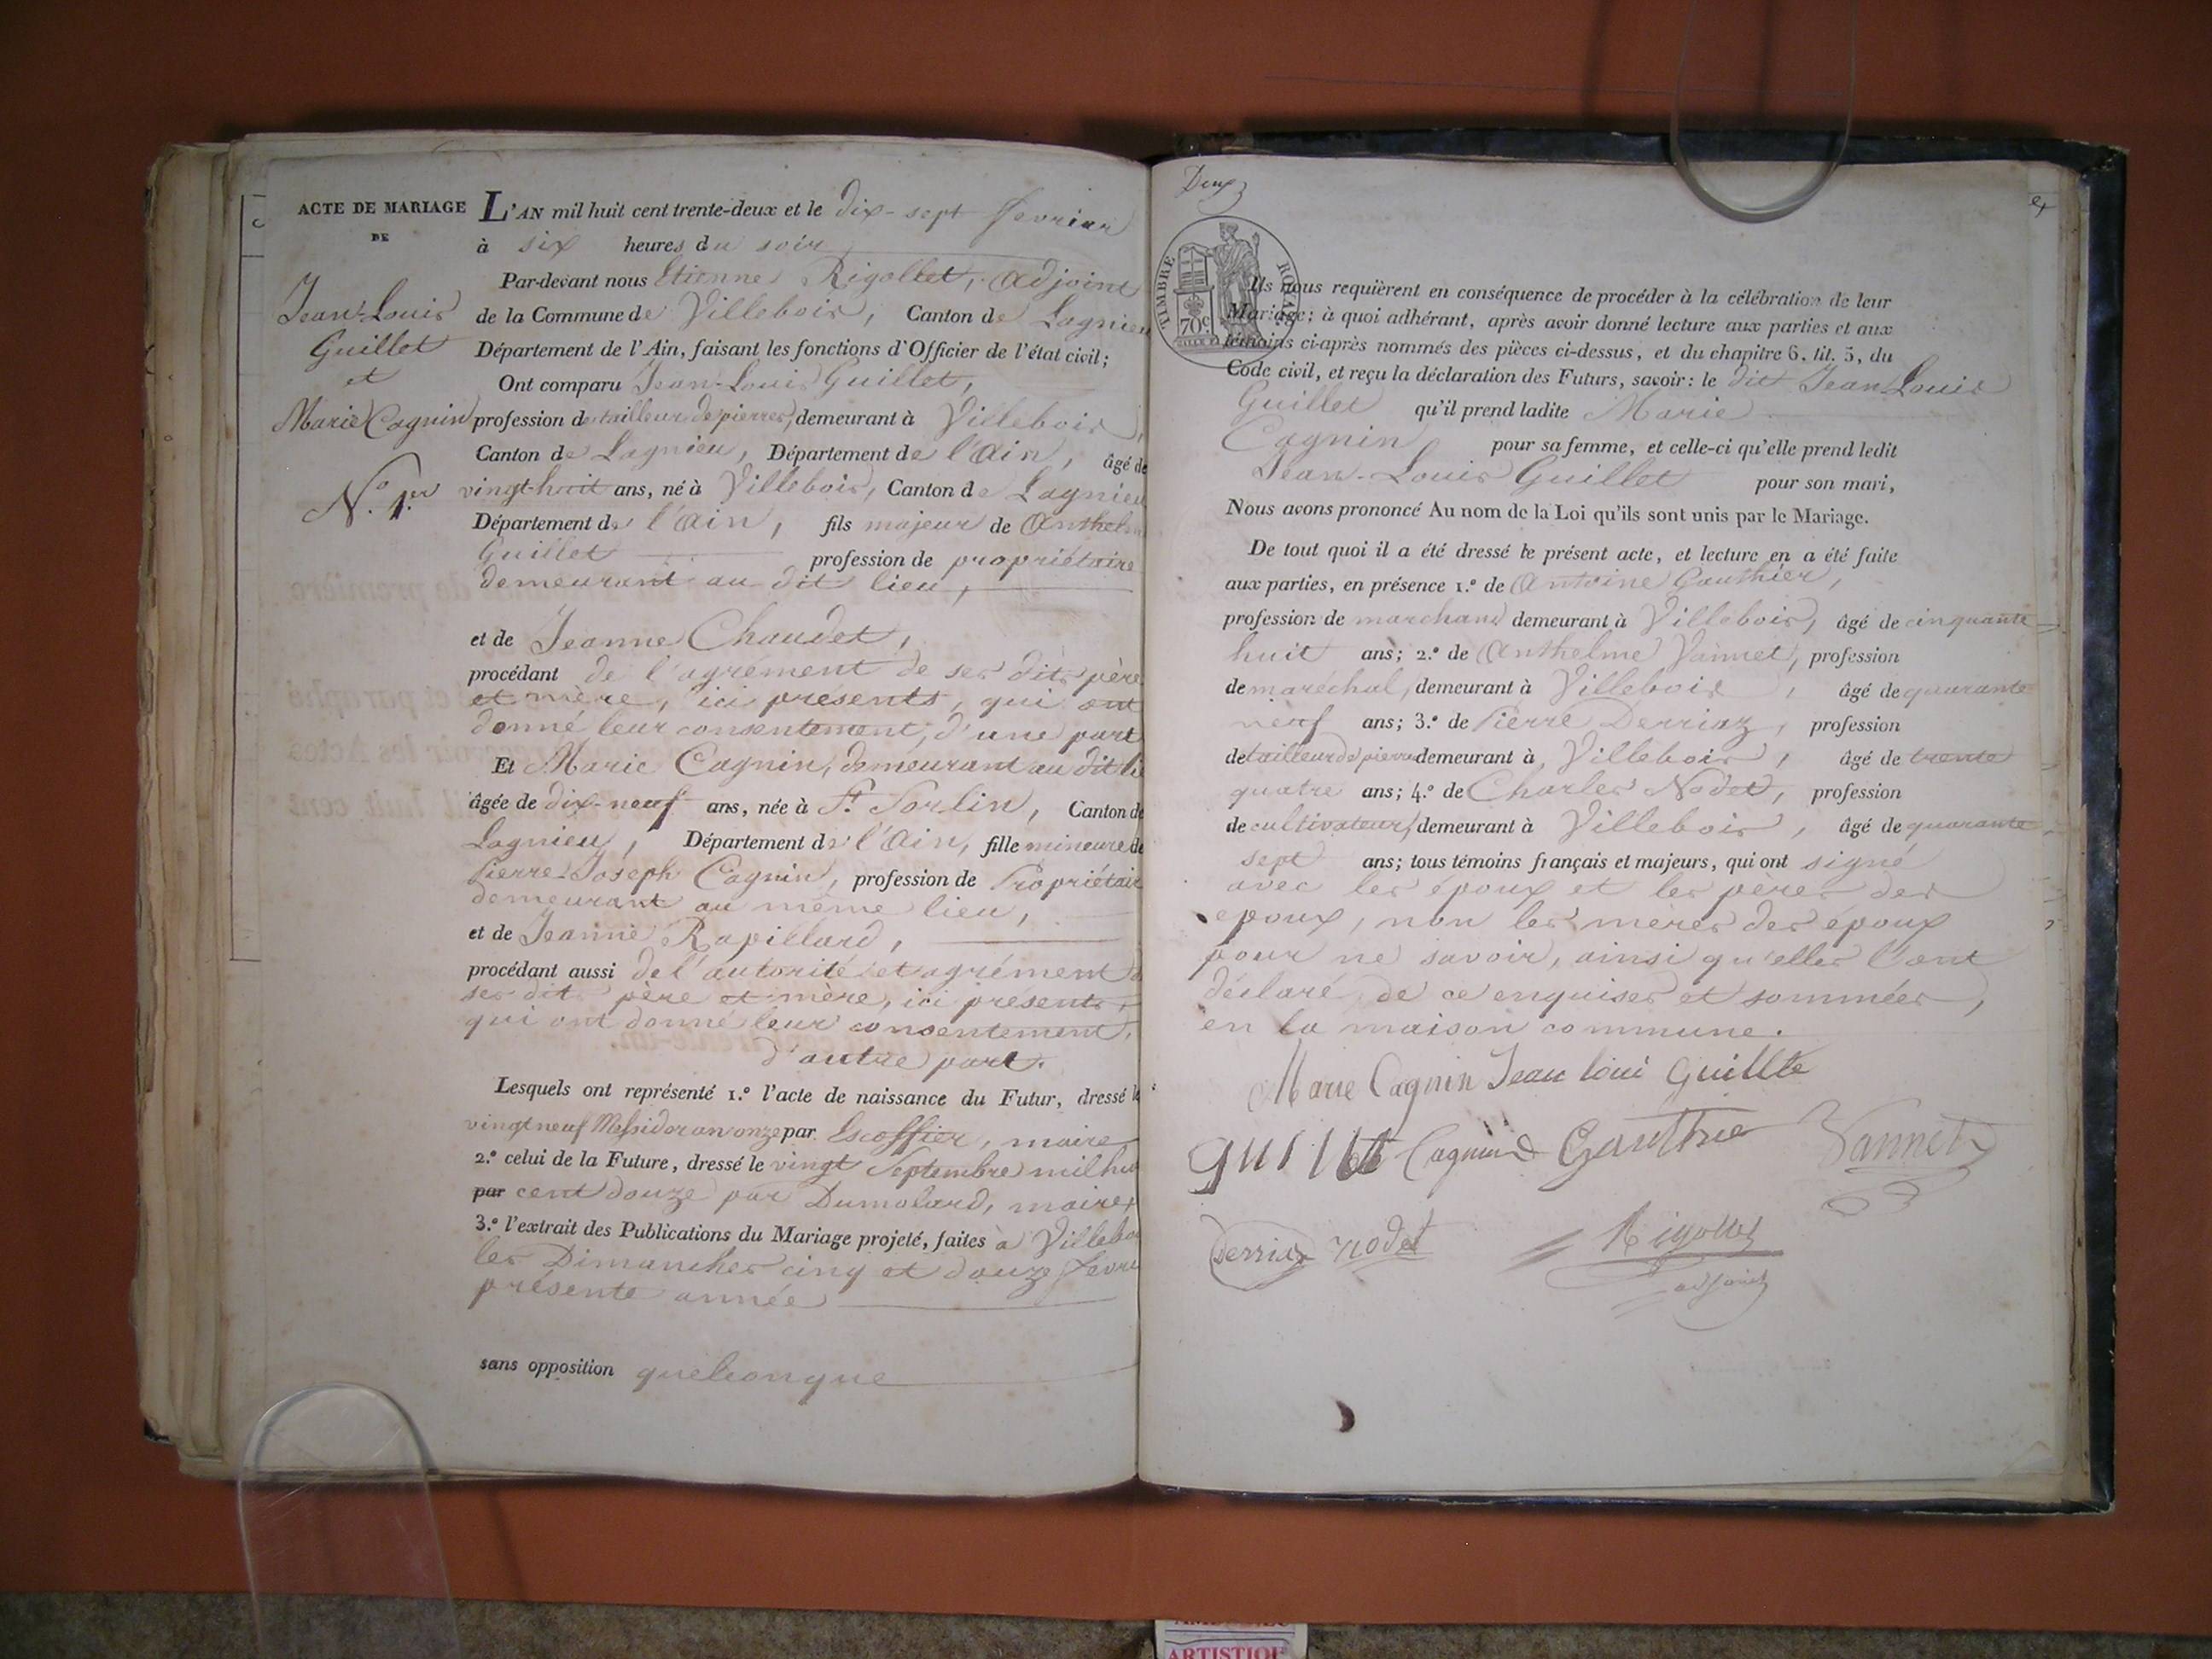 ACTE DE MARIAGE
DE
Jean-Louis
Guillet
et
Marie Cagnin
N.º 1.er
L'AN mil huit cent trente-deux et le dix-sept fevrier
à six heures du soir
Par-devant nous Etienne Rigollet, adjoint
de la Commune de Villebois, Canton de Lagnieu
Département de l'Ain, faisant les fonctions d'Officier de l'état civil;
Ont comparu Jean-Louis Guillet,
profession de tailleur de pierres, demeurant à Villebois,
Canton de Lagnieu, Département de l'Ain, âgé de
vingt-huit ans, né à Villebois, Canton de Lagnieu
Département de l'Ain, fils majeur de Anthelme
Guillet profession de propriétaire
demeurant au dit lieu,
et de Jeanne Chaudet,
procédant de l'agrément de ses dits père
et mère, ici présents, qui ont
donné leur consentement, d'une part
Et Marie Cagnin, demeurant au dit lie
âgée de dix-neuf ans, née à St. Sorlin, Canton de
Lagnieu, Département de l'Ain, fille mineure de
Pierre-Joseph Cagnin, profession de Propriétaire
demeurant au même lieu,
et de Jeanne Rapillard,
procédant aussi de l'autorité et agrément d
ses dit père et mère, ici présents,
qui ont donné leur consentement,
d'autre part.
Lesquels ont représenté 1.º l'acte de naissance du Futur, dressé le
vingt neuf Messidor an onze par Escoffier, maire
2.º celui de la Future, dressé le vingt Septembre mil hui
par cent douze par Dumolard, maire
3.º l'extrait des Publications du Mariage projeté, faites à Villebo
les Dimanches cinq et douze fevri
présente année
sans opposition quelconque
Deux
TIMBRE ROYAL
70c
Ils nous requièrent en conséquence de procéder à la célébration de leur
Mariage; à quoi adhérant, après avoir donné lecture aux parties et aux
témoins ci-après nommés des pièces ci-dessus, et du chapitre 6, tit. 5, du
Code civil, et reçu la déclaration des Futurs, savoir: le dit Jean-Louis
Guillet qu'il prend ladite Marie
Cagnin pour sa femme, et celle-ci qu'elle prend ledit
Jean-Louis Guillet pour son mari,
Nous avons prononcé Au nom de la Loi qu'ils sont unis par le Mariage.
De tout quoi il a été dressé le présent acte, et lecture en a été faite
aux parties, en présence 1.º de Antoine Gauthier,
profession de marchand demeurant à Villebois, âgé de cinquante
huit ans; 2.º de Anthelme Vannet, profession
de maréchal, demeurant à Villebois, âgé de quarante
neuf ans; 3.º de Pierre Derriaz, profession
de tailleur de pierre demeurant à Villebois, âgé de trente
quatre ans; 4.º de Charles Nodet, profession
de cultivateur, demeurant à Villebois, âgé de quarante
sept ans; tous témoins français et majeurs, qui ont signé
avec les époux et les pères des
epoux, non les mères des époux
pour ne savoir, ainsi qu'elles l'ont
déclaré, de ce enquises et sommées,
en la maison commune.
Marie Cagnin Jean loui Guillte
Cagnin Gauthie Vannet
Derriaz nodet Rigollet
adjoint
ARTISTIQUE